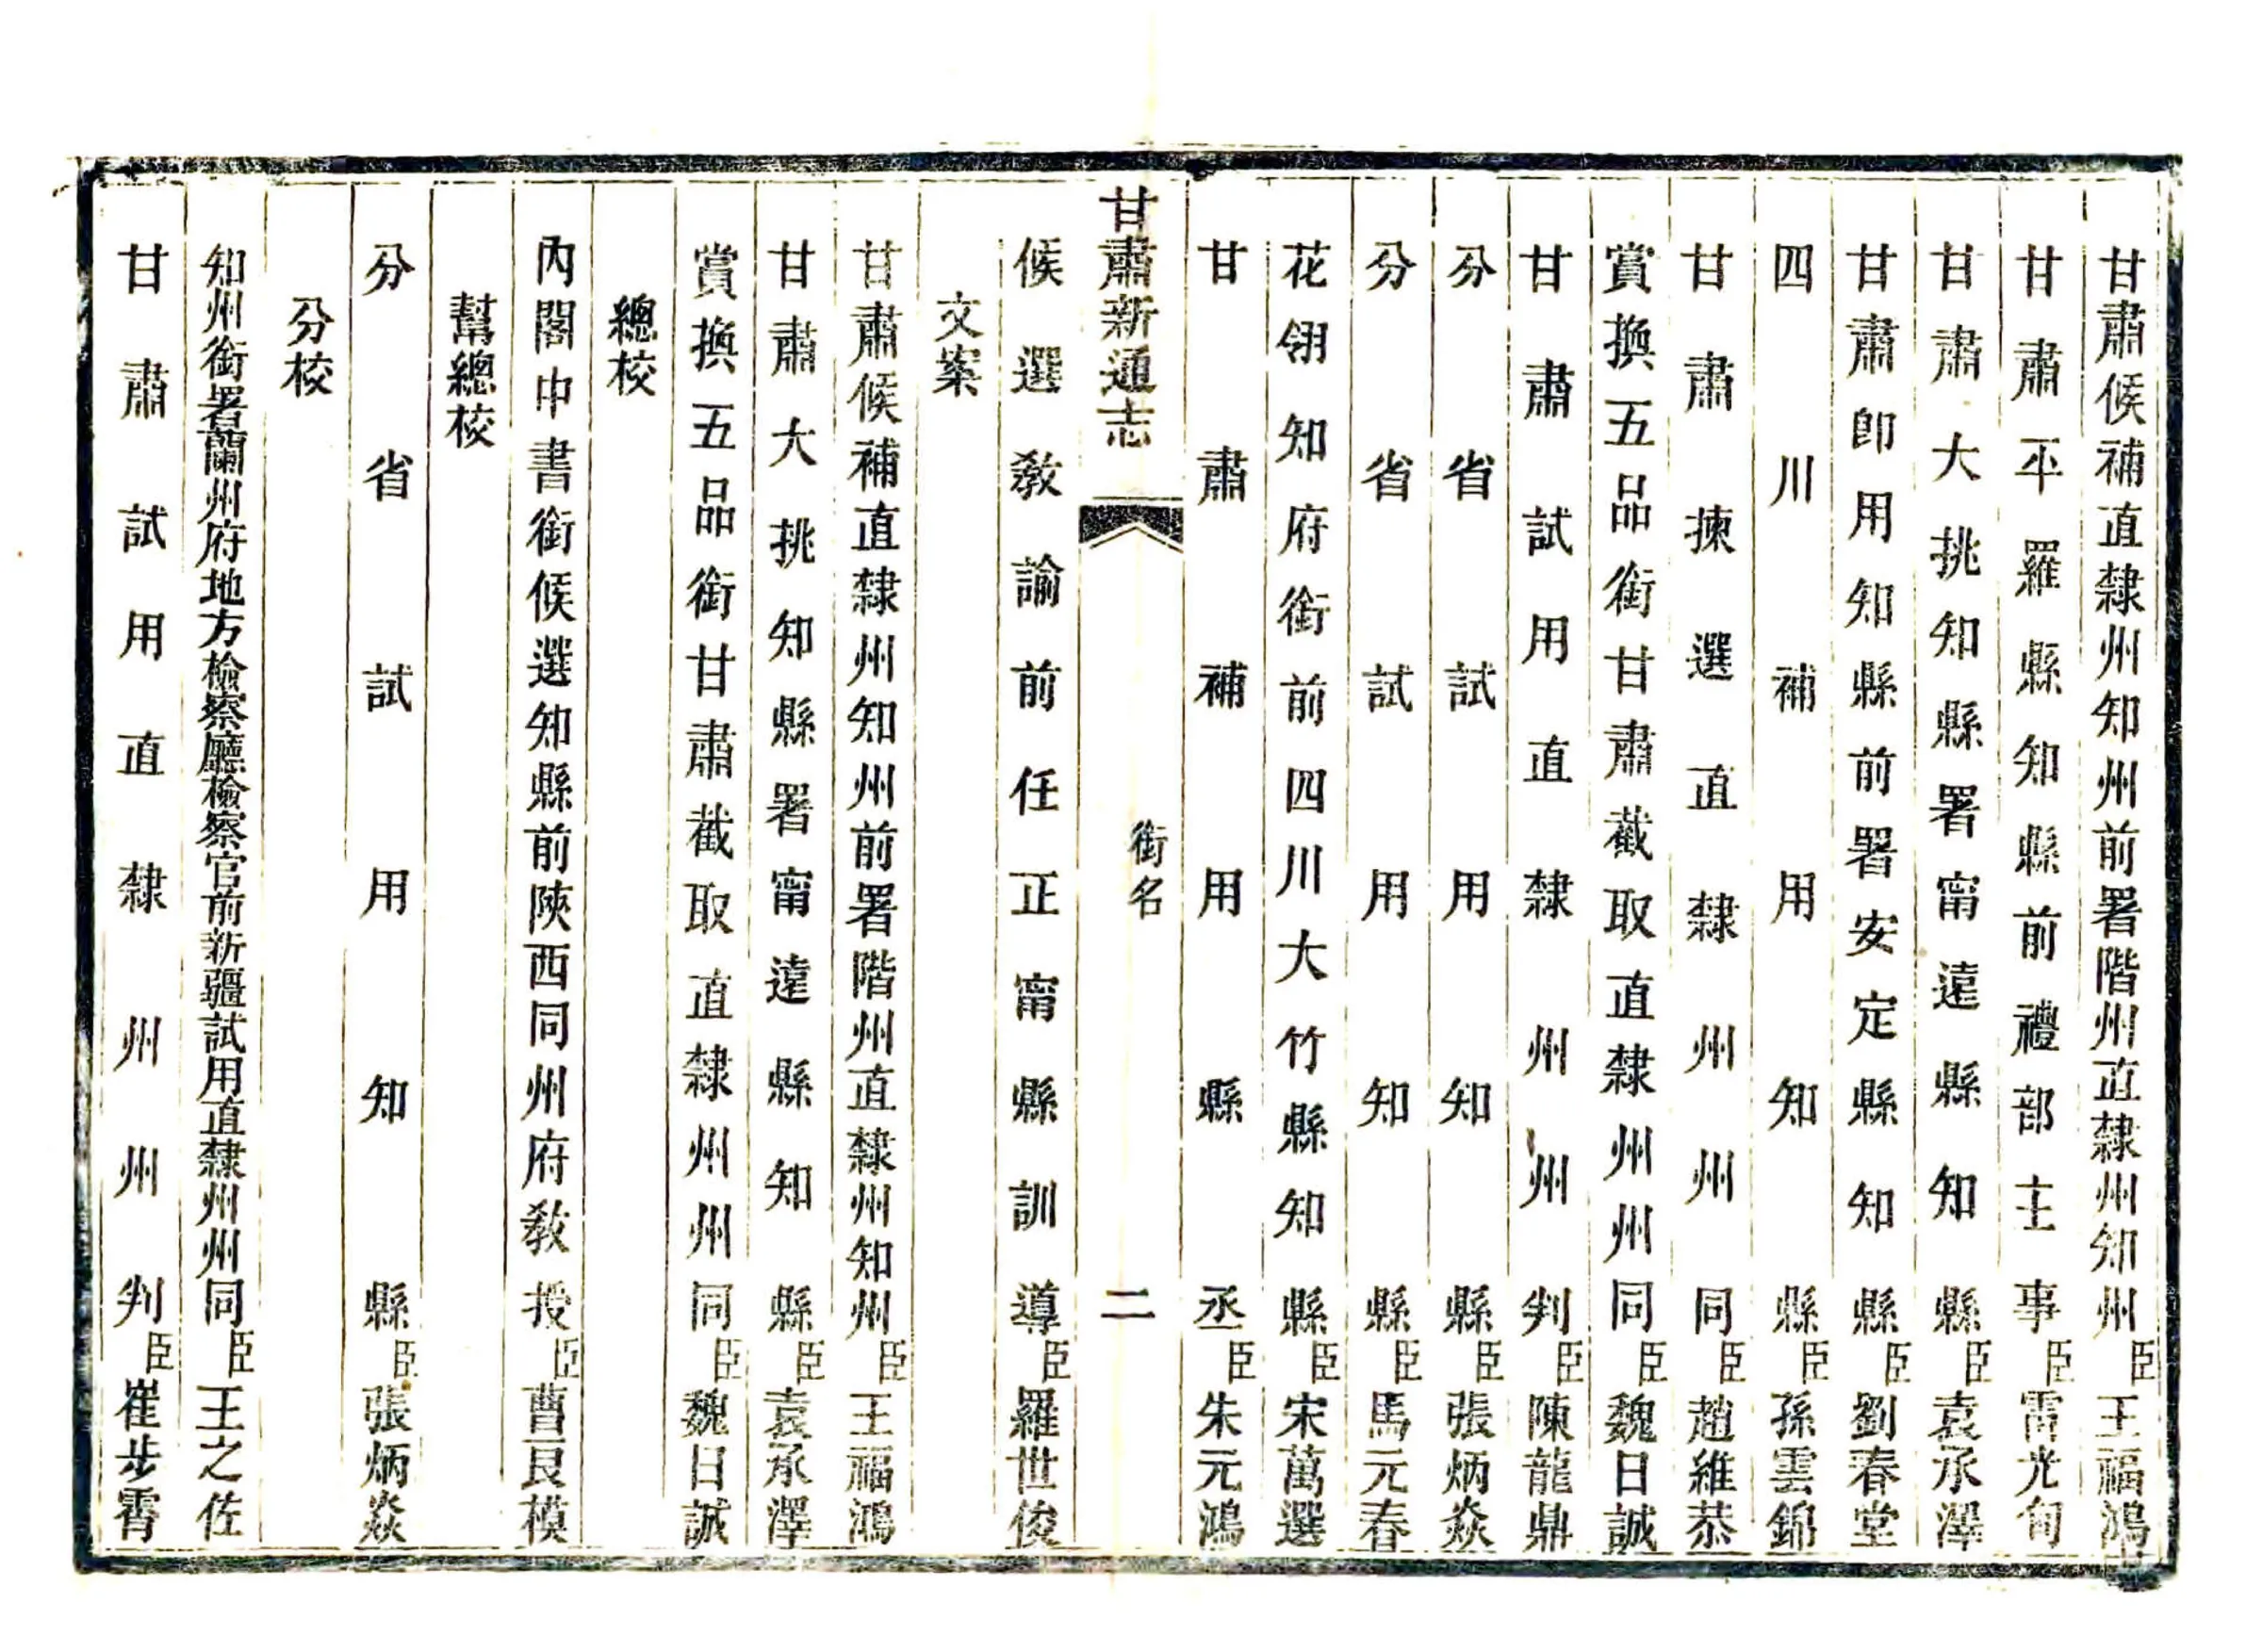 甘肅候補直隸州知州前署階州直隸州知州臣王福鴻
甘肅平羅縣知縣前禮部主事臣雷光甸
甘肅大挑知縣署甯遠縣知縣臣袁承澤
甘肅卽用知縣前署安定縣知縣臣劉春堂
四川補用知縣臣孫雲錦
甘肅揀選直隸州州同臣趙維恭
賞換五品銜甘肅截取直隸州州同臣魏日誠
甘肅試用直隸州州判臣陳龍鼎
分省試用知縣臣張炳焱
分省試用知縣臣馬元春
花翎知府銜前四川大竹縣知縣臣宋萬選
甘肅補用縣丞臣朱元鴻
甘肅新通志
銜名
二
候選教諭前任正甯縣訓導臣羅世俊
文案
甘肅候補直隸州知州前署階州直隸州知州臣王福鴻
甘肅大挑知縣署甯遠縣知縣臣袁承澤
賞換五品銜甘肅截取直隸州州同臣魏日誠
總校
內閣中書銜候選知縣前陝西同州府教授臣曹艮模
幫總校
分省試用知縣臣張炳焱
分校
知州銜署蘭州府地方檢察廳檢察官前新疆試用直隸州州同臣王之佐
甘肅試用直隸州州判臣崔步霄